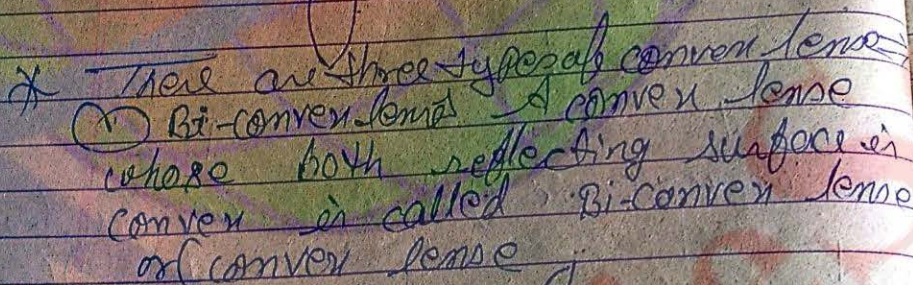 * There are three types of convex lense
(1) Bi-convex lens A convex lense
whose both reflecting surface is
convex is called Bi-convex lense
or convex lense